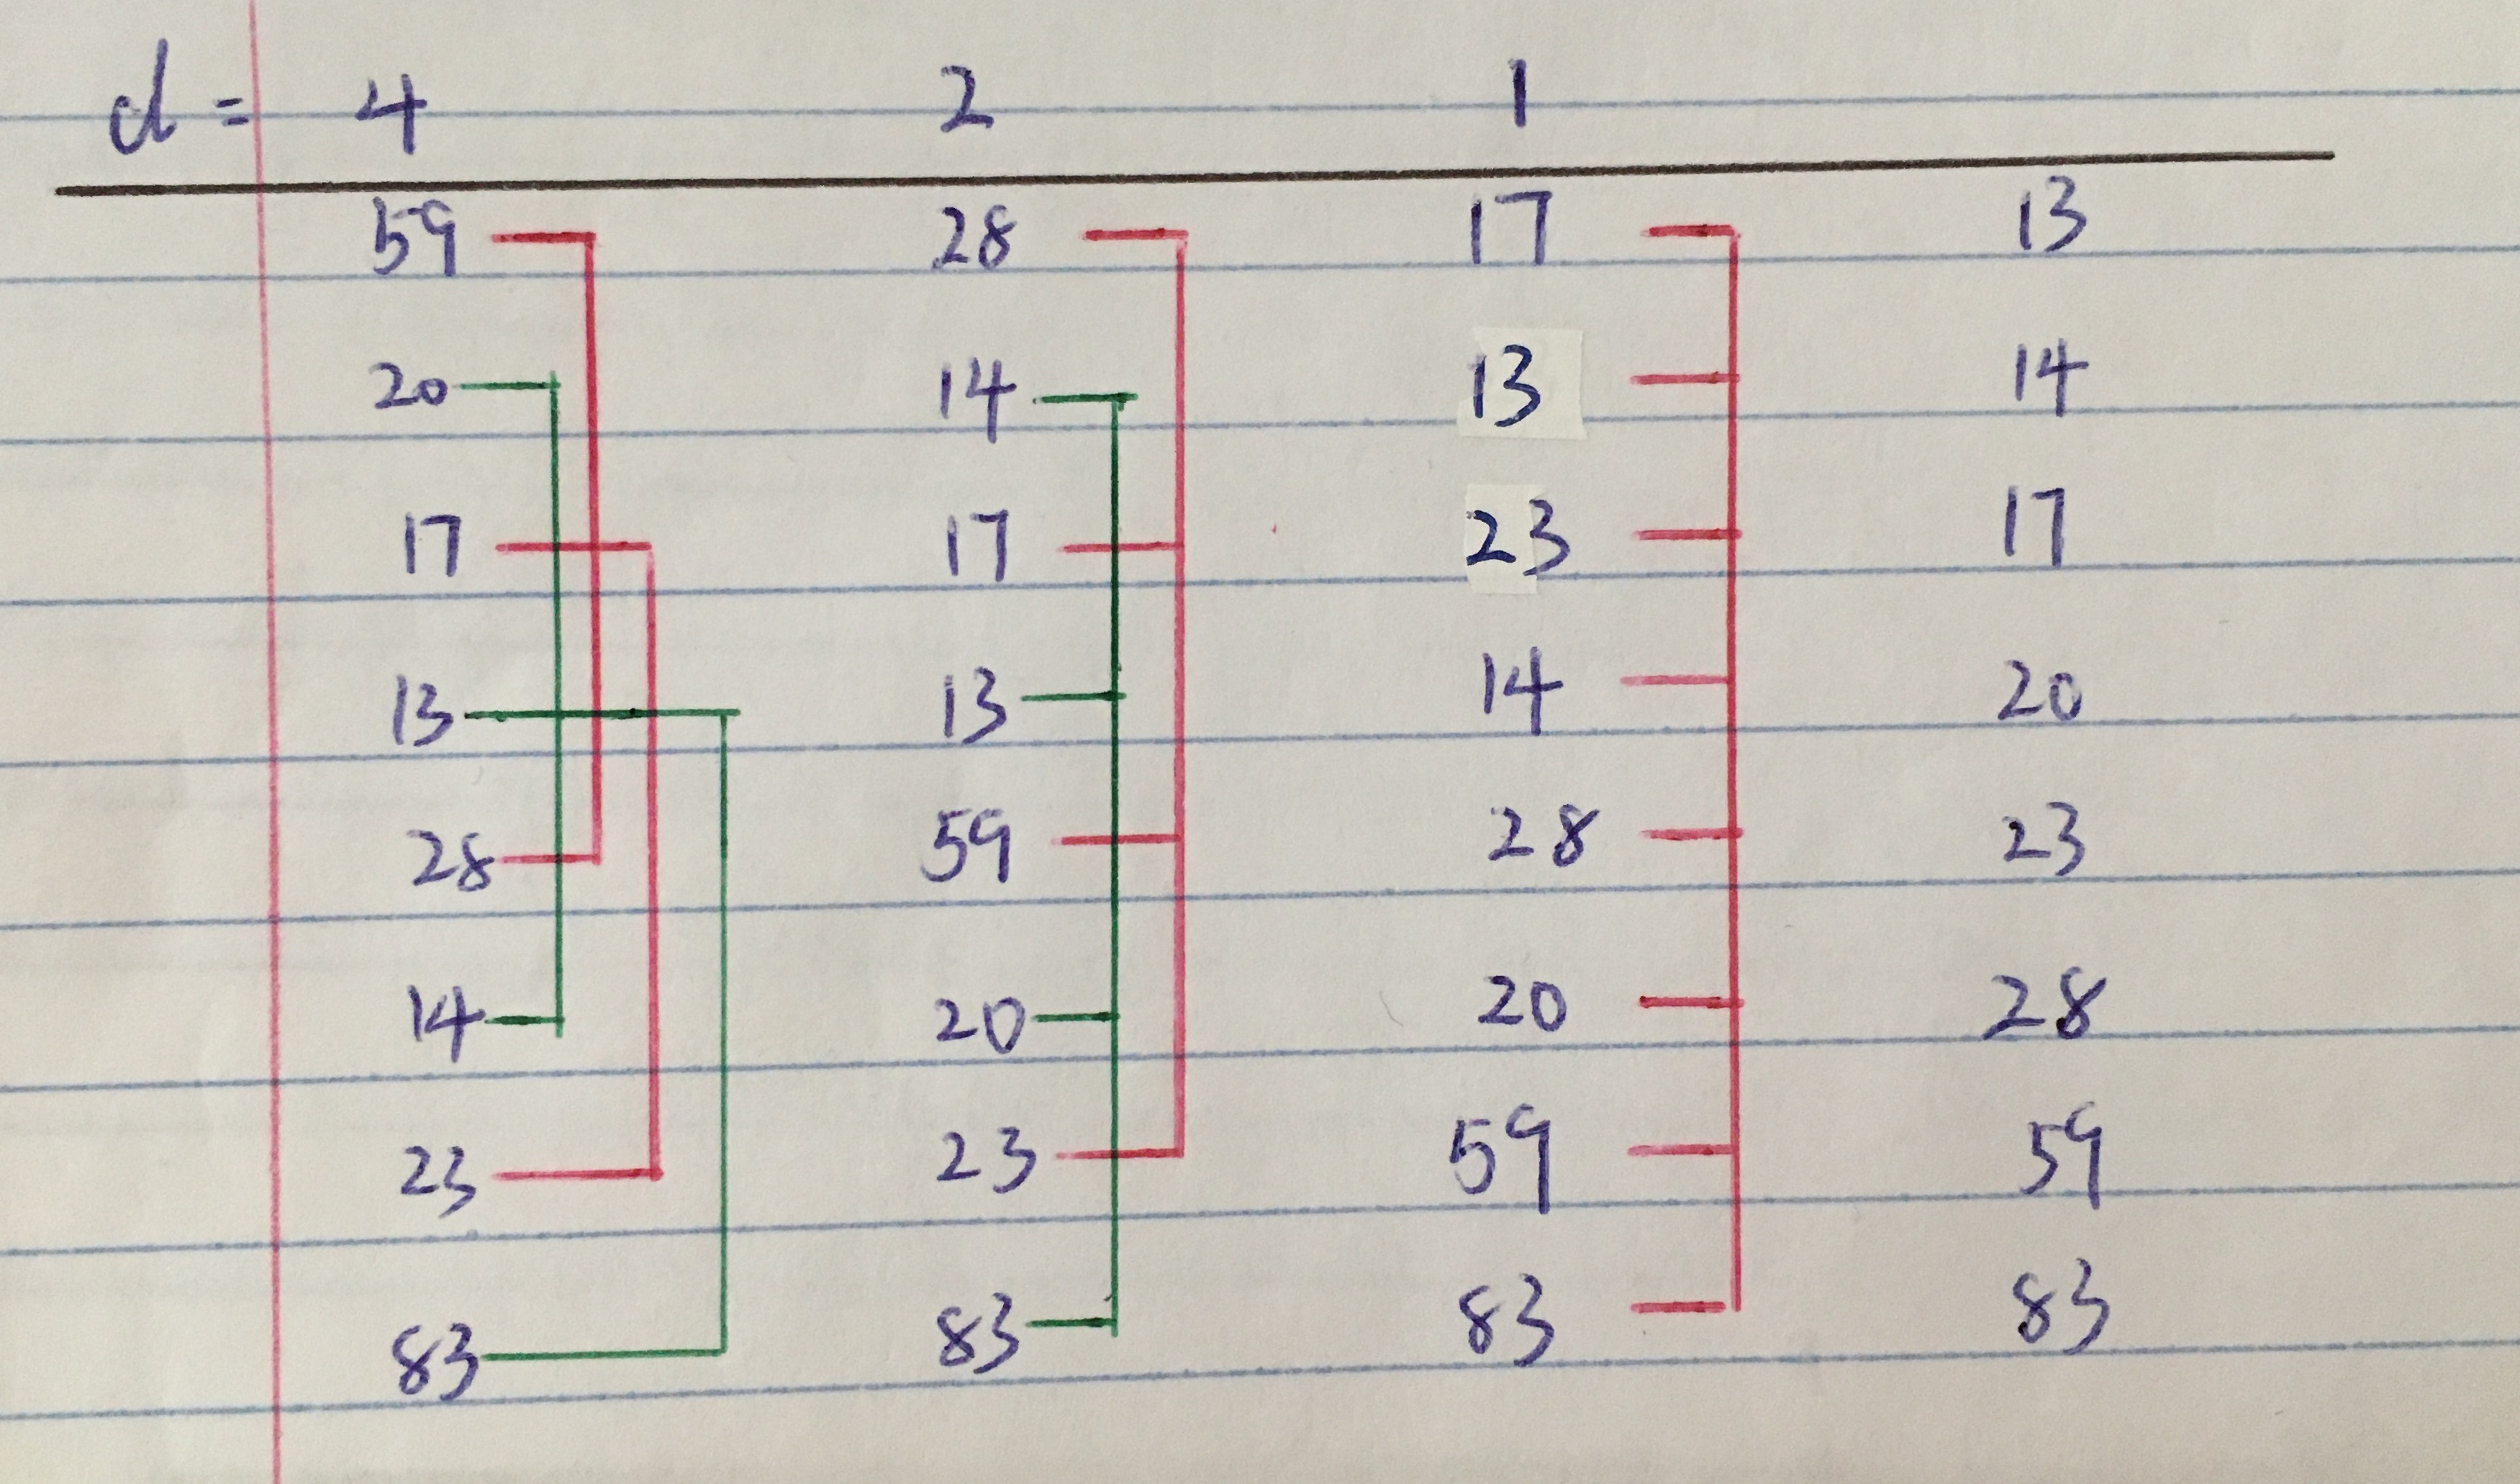 d = 4 2 1
59 28 17 13
20 14 13 14
17 17 23 17
13 13 14 20
28 59 28 23
14 20 20 28
23 23 59 59
83 83 83 83